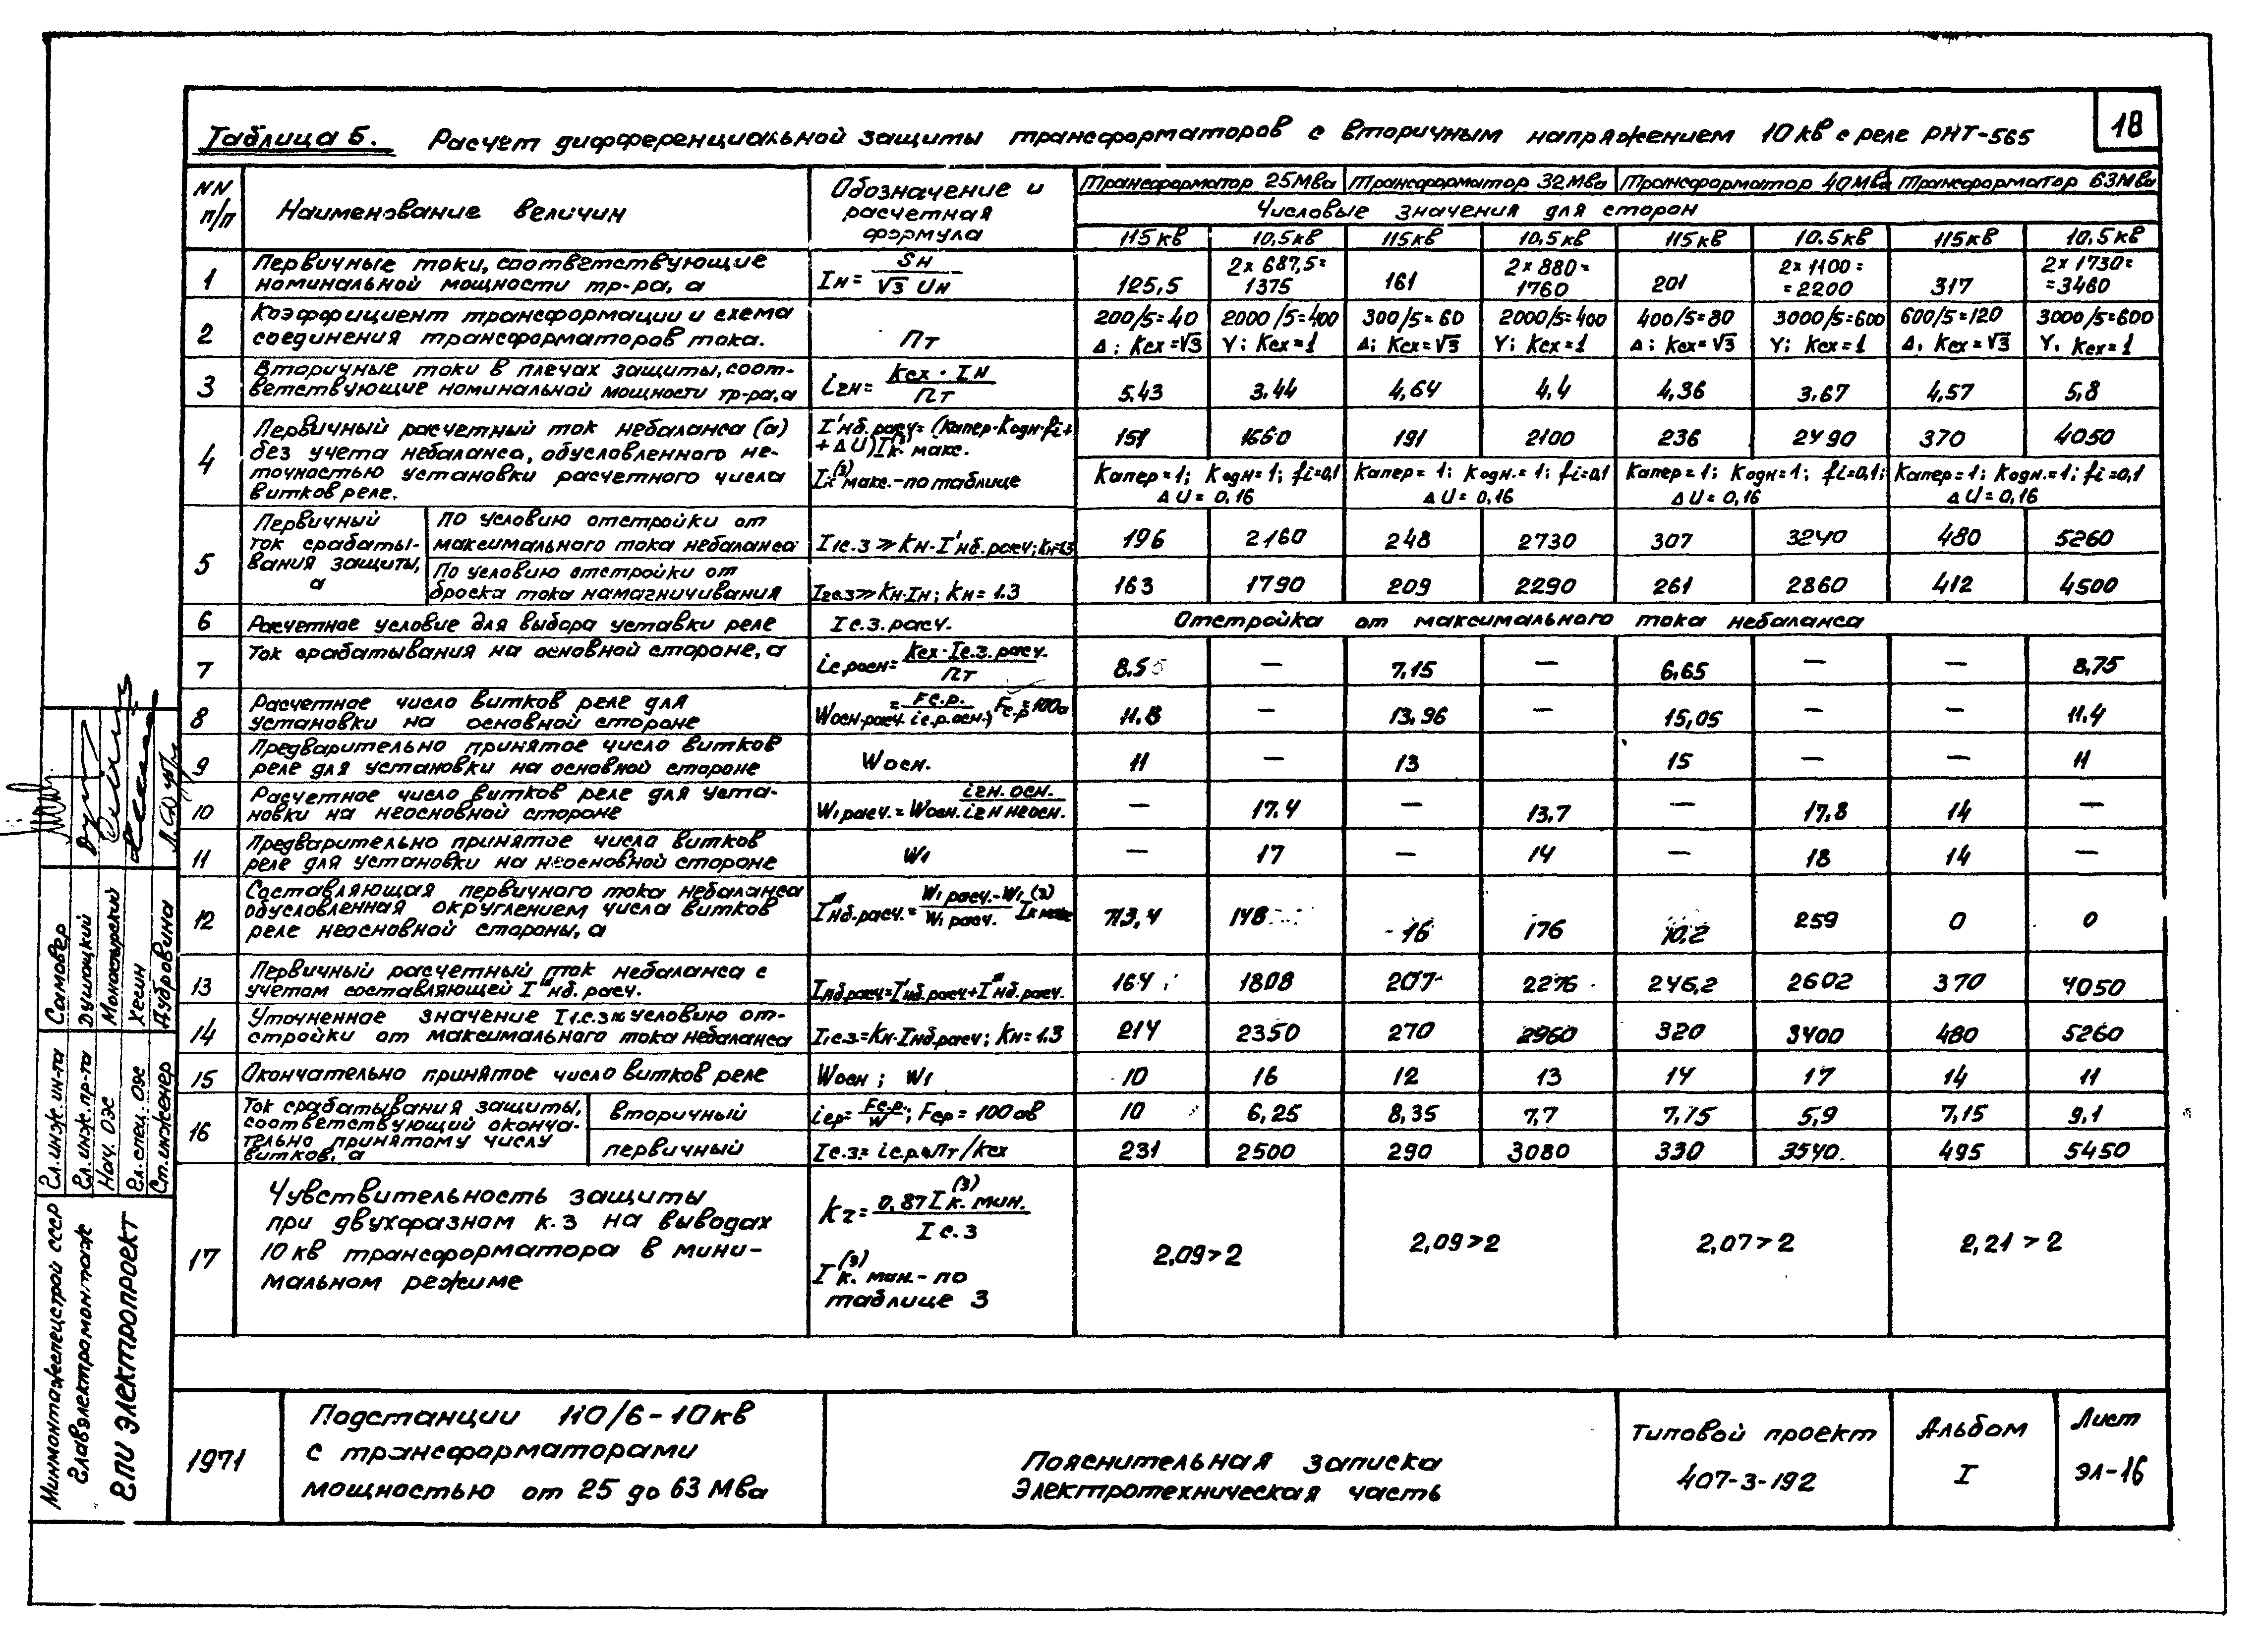 18
Таблица 5. Расчет дифференциальной защиты трансформаторов с вторичным напряжением 10кв с реле РНТ-565
NN п/п
Наименование величин
Обозначение и расчетная формула
Трансформатор 25Мва
Трансформатор 32Мва
Трансформатор 40Мва
Трансформатор 63Мва
Числовые значения для сторон
115кв 10,5кв 115кв 10,5кв 115кв 10.5кв 115кв 10,5кв
1 Первичные токи, соответствующие
номинальной мощности тр-ра, а
Iн = Sн / √3 Uн
125,5 2х687,5=1375 161 2х880=1760 201 2х1100==2200 317 2х1730==3460
2 Коэффициент трансформации и схема
соединения трансформаторов тока.
Пт
200/5=40 2000/5=400 300/5=60 2000/5=400 400/5=80 3000/5=600 600/5=120 3000/5=600
Δ; Ксх=√3 Y; Ксх=1 Δ; Ксх=√3 Y; Ксх=1 Δ; Ксх=√3 Y; Ксх=1 Δ, Ксх=√3 Y, Ксх=1
3 Вторичные токи в плечах защиты, соот-
ветствующие номинальной мощности тр-ра, а
i2н= Ксх·Iн / Пт
5.43 3.44 4,64 4,4 4,36 3,67 4,57 5,8
4 Первичный расчетный ток небаланса (а)
без учета небаланса, обусловленного не-
точностью установки расчетного числа
витков реле.
I'нб.расч=(Капер·Кодн·fi+
+ΔU)I(3)к. макс.
I(3)к макс.-по таблице
151 1660 191 2100 236 2490 370 4050
Капер=1; Кодн=1; fi=0,1 Капер=1; Кодн.=1; fi=0,1 Капер=1; Кодн=1; fi=0,1; Капер=1; Кодн.=1; fi=0,1
ΔU=0,16 ΔU=0,16 ΔU=0,16 ΔU=0,16
5 Первичный
ток срабаты-
вания защиты,
а
по условию отстройки от
максимального тока небаланса
I1с.з ≥ Кн·I'нб.расч; Кн=1,3
196 2160 248 2730 307 3240 480 5260
По условию отстройки от
броска тока намагничивания
I2с.з ≥ Кн·Iн; Кн=1.3
163 1790 209 2290 261 2860 412 4500
6 Расчетное условие для выбора уставки реле
Iс.з.расч.
Отстройка от максимального тока небаланса
7 Ток срабатывания на основной стороне, а
iс.росн= Ксх·Iс.з.расч. / Пт
8.5 — 7,15 — 6,65 — — 8,75
8 Расчетное число витков реле для
установки на основной стороне
Wосн.расч.= Fс.р. / iс.р.осн.; Fс.р=100а
11.8 — 13,96 — 15,05 — — 11.4
9 Предварительно принятое число витков
реле для установки на основной стороне
Wосн.
11 — 13 15 — — 11
10 Расчетное число витков реле для уста-
новки на неосновной стороне
W1расч.=Wосн. i2н.осн. / i2н неосн.
— 17.4 — 13,7 — 17,8 14 —
11 Предварительно принятое числа витков
реле для установки на неосновной стороне
W1
— 17 — 14 — 18 14 —
12 Составляющая первичного тока небаланса
обусловленная округлением числа витков
реле неосновной стороны, а
I'''нб.расч.= W1расч.-W1 / W1расч. I(3)к макс
13,4 148 16 176 10,2 259 0 0
13 Первичный расчетный ток небаланса с
учетом составляющей I'''нб.расч.
Iнб.расч=I'нб.расч+I'''нб.расч.
164 1808 207 2276 246,2 2602 370 4050
14 Уточненное значение I1с.з по условию от-
стройки от максимального тока небаланса
I1с.з=Кн·Iнб.расч; Кн=1,3
214 2350 270 2960 320 3400 480 5260
15 Окончательно принятое число витков реле
Wосн; W1
10 16 12 13 14 17 14 11
16 Ток срабатывания защиты,
соответствующий оконча-
тельно принятому числу
витков, а
вторичный
iср= Fс.р. / W; Fср=100ав
10 6,25 8,35 7,7 7,15 5,9 7,15 9,1
первичный
Iс.з=iс.р.Пт/Ксх
231 2500 290 3080 330 3540 495 5450
17 Чувствительность защиты
при двухфазном к.з на выводах
10 кв трансформатора в мини-
мальном режиме
Кч= 0,87I(3)к.мин. / Iс.з
I(3)к. мин.-по
таблице 3
2,09>2 2,09>2 2,07>2 2,21>2
1971
Подстанции 110/6-10кв
с трансформаторами
мощностью от 25 до 63Мва
Пояснительная записка
Электротехническая часть
Типовой проект
407-3-192
Альбом
I
Лист
ЭЛ-16
Минмонтажспецстрой СССР
Главэлектромонтаж
ГПИ Электропроект
Гл. инж. ин-та Самовер
Гл. инж. пр-та Душацкий
Нач. ОЭС Монастырский
Гл. спец. ОЭС Хесин
Ст. инженер Дубровина